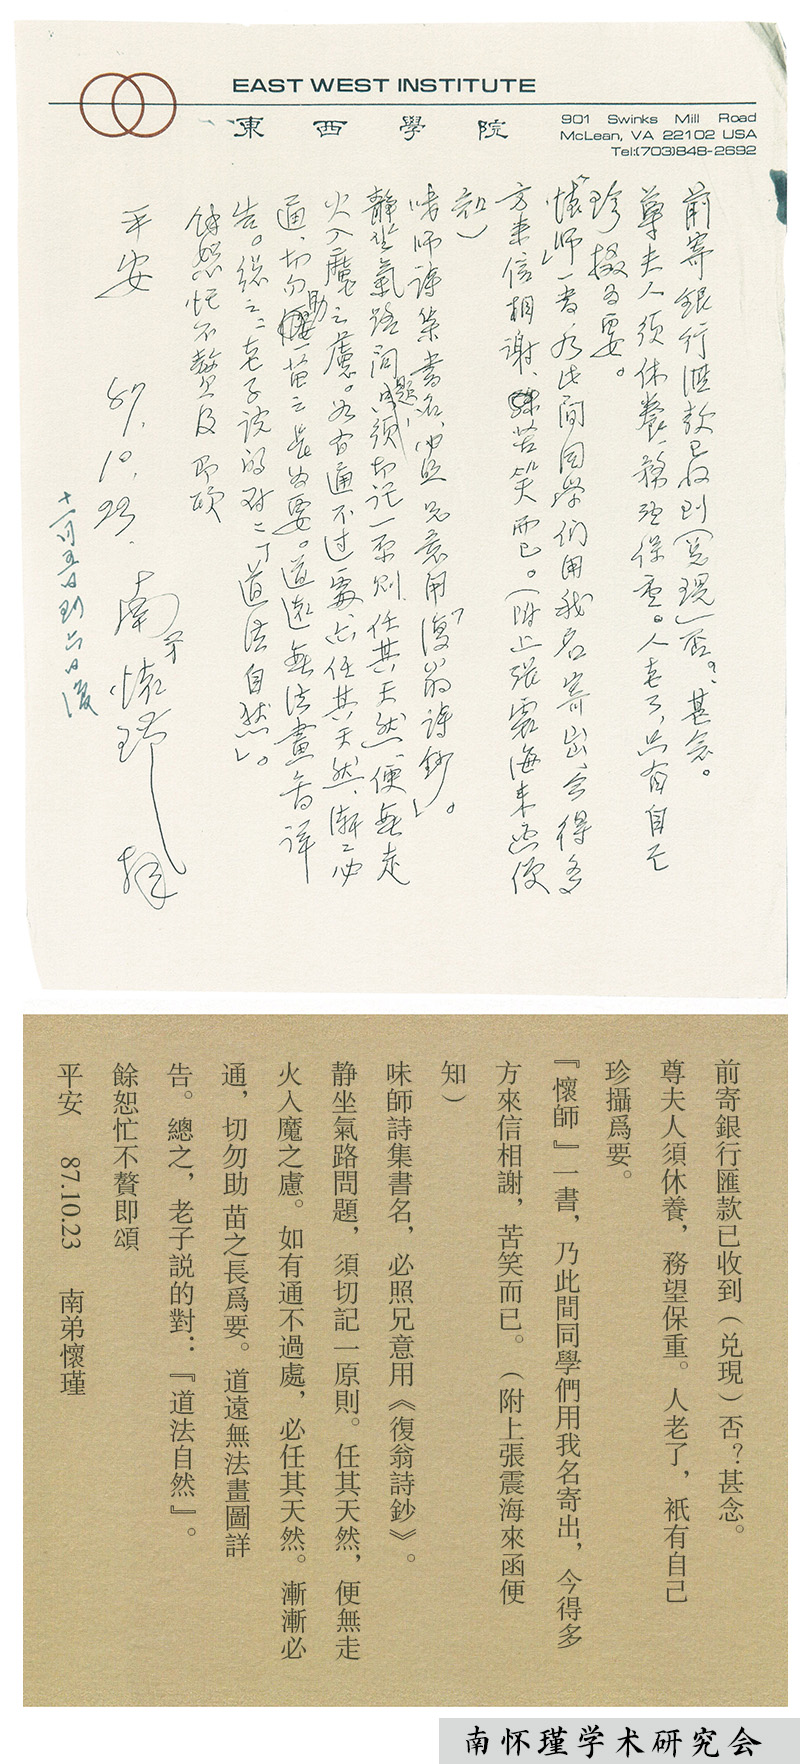 EAST WEST INSTITUTE
東西學院
901 Swinks Mill Road
McLean, VA 22102 USA
Tel:(703)848-2692
前寄銀行匯款已收到(兌現)否?甚念。
尊夫人須休養,務望保重。人老了,只有自己
珍攝為要。
「懷師」一書,乃此間同學們用我名寄出,今得多
方來信相謝,苦笑而已。(附上張震海來函便
知)
味師詩集書名,必照兄意用「復翁詩鈔」。
靜坐氣路問題,須切記一原則,任其天然,便無走
火入魔之慮。如有通不过處,必任其天然,漸漸必
通,切勿助苗之長為要。道遠無法畫圖詳
告。總之,老子說的对:「道法自然」。
餘恕忙不贅 即頌
平安 87.10.23. 南弟懷瑾
十一月五日到六日復
前寄銀行匯款已收到(兑現)否?甚念。
尊夫人須休養,務望保重。人老了,衹有自己
珍攝爲要。
『懷師』一書,乃此間同學們用我名寄出,今得多
方來信相謝,苦笑而已。(附上張震海來函便
知)
味師詩集書名,必照兄意用《復翁詩鈔》。
静坐氣路問題,須切記一原則。任其天然,便無走
火入魔之慮。如有通不過處,必任其天然。漸漸必
通,切勿助 苗之長爲要。道遠無法畫圖詳
告。總之,老子説的對:『道法自然』。
餘恕忙不贅即頌
平安 87.10.23 南弟懷瑾
南怀瑾学术研究会